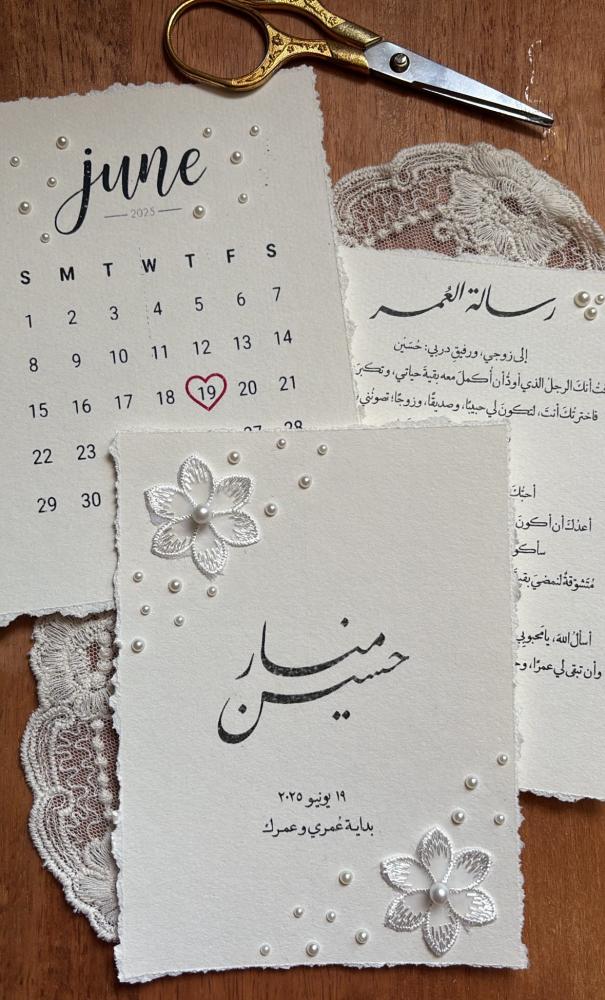 june
2025
S M T W T F S
1 2 3 4 5 6 7
8 9 10 11 12 13 14
15 16 17 18 19 20 21
22 23 27 28
29 30
رسالة العُمر
إلى زوجي، ورفيق دربي: حُسَين
أنكَ الرجل الذي أودُّ أن أكملَ معه بقيةَ حياتي، وتكبرَ
فاخترتُكَ أنتَ، لتكونَ لي حبيبًا، وصديقًا، وزوجًا؛ تصونُني
أحبُّكَ
أعدُكَ أن أكونَ
سأكو
مُتَشوّقةٌ لنمضيَ بقيةَ
أسألُ اللهَ، يا محبوبي
وأن تبقى لي عمرًا، و
منار
حسين
١٩ يونيو ٢٠٢٥
بداية عُمري وعمرك